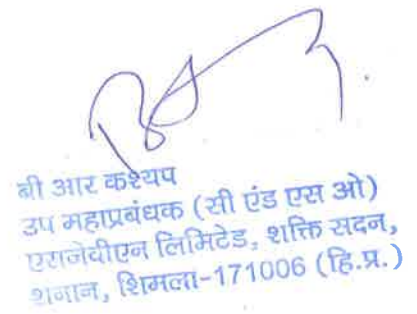 बी आर कश्यप
उप महाप्रबंधक (सी एंड एस ओ)
एसजेवीएन लिमिटेड, शक्ति सदन,
शनान, शिमला-171006 (हि.प्र.)